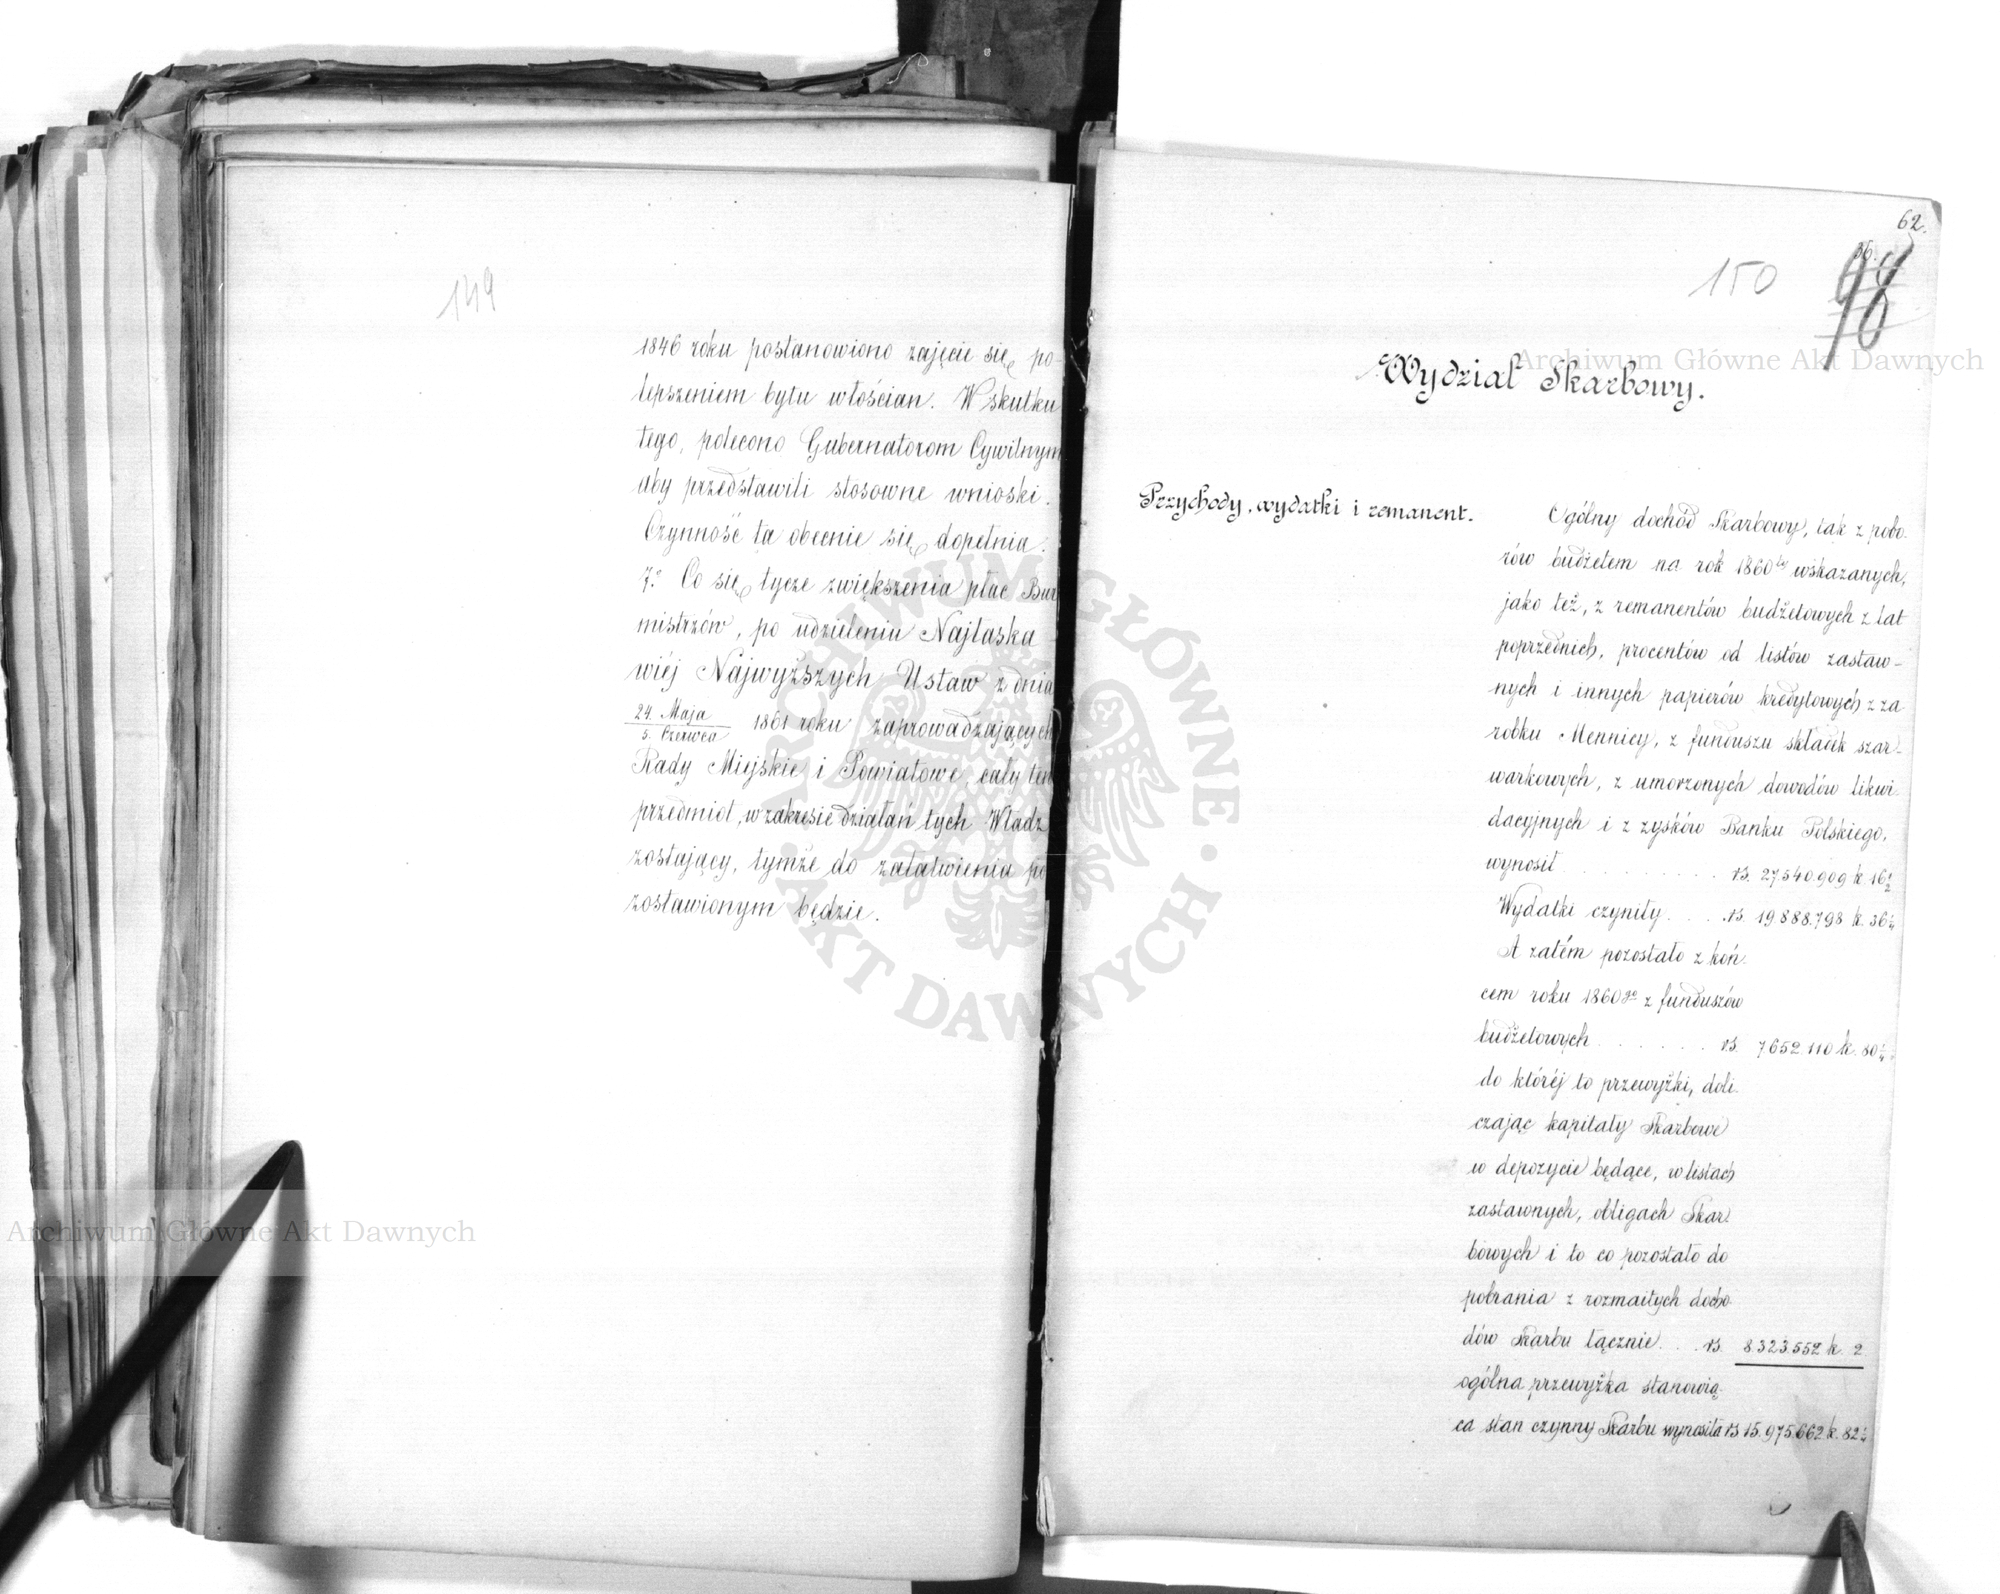 149
1846 roku postanowiono zajęcie się po
lepszeniem bytu włościan. W skutku
tego, polecono Gubernatorom Cywilnym
aby przedstawili stosowne wnioski.
Czynność ta obecnie się dopełnia.
7.o Co się tycze zwiększenia płac Bur
mistrzów, po udzieleniu Najłaska
wiéj Najwyższych Ustaw z dnia
24. Maja
5. Czerwca 1861 roku zaprowadzających
Rady Miejskie i Powiatowe, cały ten
przedmiot, w zakresie działań tych Władz
zostający, tymże do załatwienia po
zostawionym będzie.
62.
150
98
Wydział Skarbowy.
Przychody, wydatki i remanent.
Ogólny dochód Skarbowy, tak z pobo-
rów budżetem na rok 1860ty wskazanych,
jako też, z remanentów budżetowych z lat
poprzednich, procentów od listów zastaw-
nych i innych papierów kredytowych z za-
robku Mennicy, z funduszu składek szar-
warkowych, z umorzonych dowodów likwi-
dacyjnych i z zysków Banku Polskiego,
wynosił . . . . . . . . . rs. 27.540.909 k. 16 1/2
Wydatki czyniły. . . . rs. 19.888.798 k. 36 1/4
A zatém pozostało z koń-
cem roku 1860go z funduszów
budżetowych . . . . . . rs. 7.652.110 k. 80 1/4
do któréj to przewyżki, doli-
czając kapitały Skarbowe
w depozycie będące, w listach
zastawnych, obligach Skar-
bowych i to co pozostało do
pobrania z rozmaitych docho-
dów Skarbu łącznie. . . rs. 8.323.552 k. 2
ogólna przewyżka stanowią-
ca stan czynny Skarbu wynosiła rs 15.975.662 k. 82 1/4
Archiwum Główne Akt Dawnych
Archiwum Główne Akt Dawnych
ARCHIWUM GŁÓWNE · AKT DAWNYCH ·